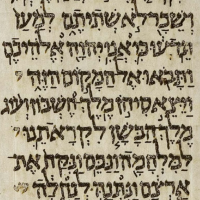 ושכר לא שתיתם למען
תדעו כי אני יהוה אלהיכם
ותבאו אל המקום הזה
ויצא סיחן מלך חשבון ועוג
מלך הבשן לקראתנו
למלחמה ונכם ונקח את
ארצם ונתנה לנחלה